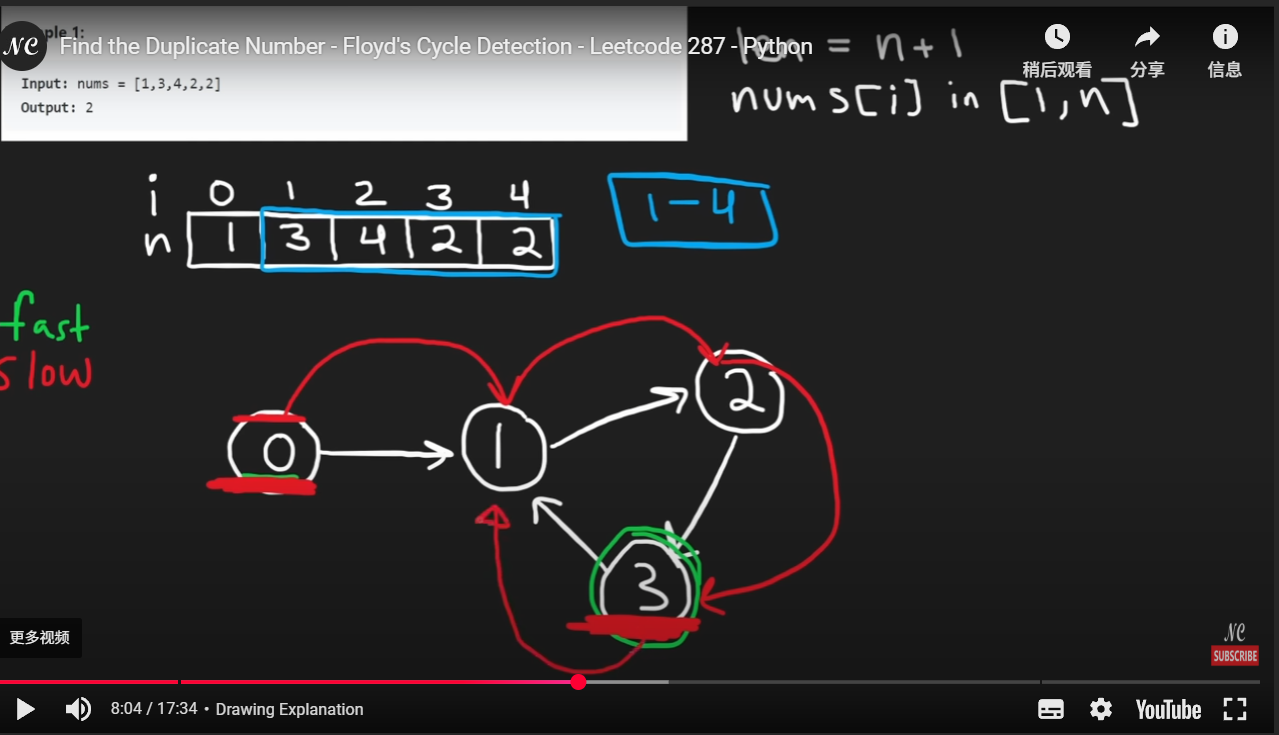 Find the Duplicate Number - Floyd's Cycle Detection - Leetcode 287 - Python
ple 1:
NC
Input: nums = [1,3,4,2,2]
Output: 2
len = n+1
稍后观看 分享 信息
nums[i] in [1,n]
i 0 1 2 3 4
n 1 3 4 2 2
1-4
fast
slow
0 1 2
3
更多视频
NC
SUBSCRIBE
8:04 / 17:34 • Drawing Explanation
YouTube